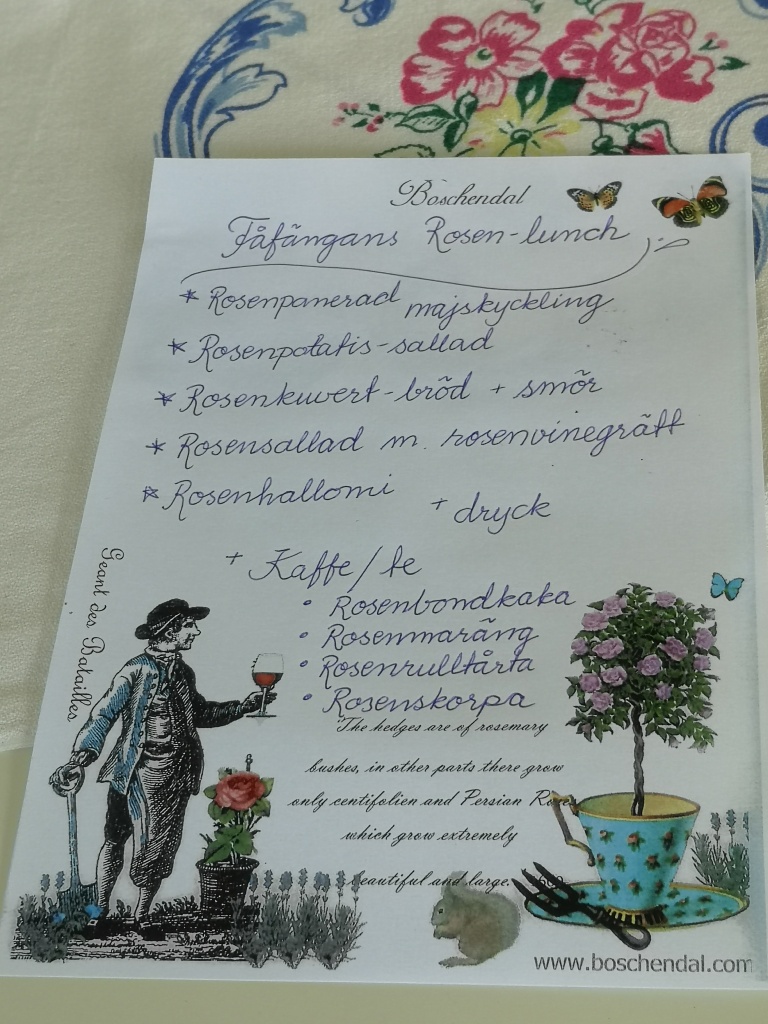 Boschendal
Fåfängans Rosen-lunch
* Rosenpanerad majskyckling
* Rosenpotatis-sallad
* Rosenkuvert-bröd + smör
* Rosensallad m. rosenvinegrätt
* Rosenhallomi
+ dryck
+ Kaffe/te
• Rosenbondkaka
• Rosenmaräng
• Rosenrulltårta
• Rosenskorpa
Geant des Batailles
"The hedges are of rosemary
bushes, in other parts there grow
only centifolien and Persian Roses
which grow extremely
beautiful and large.
www.boschendal.com